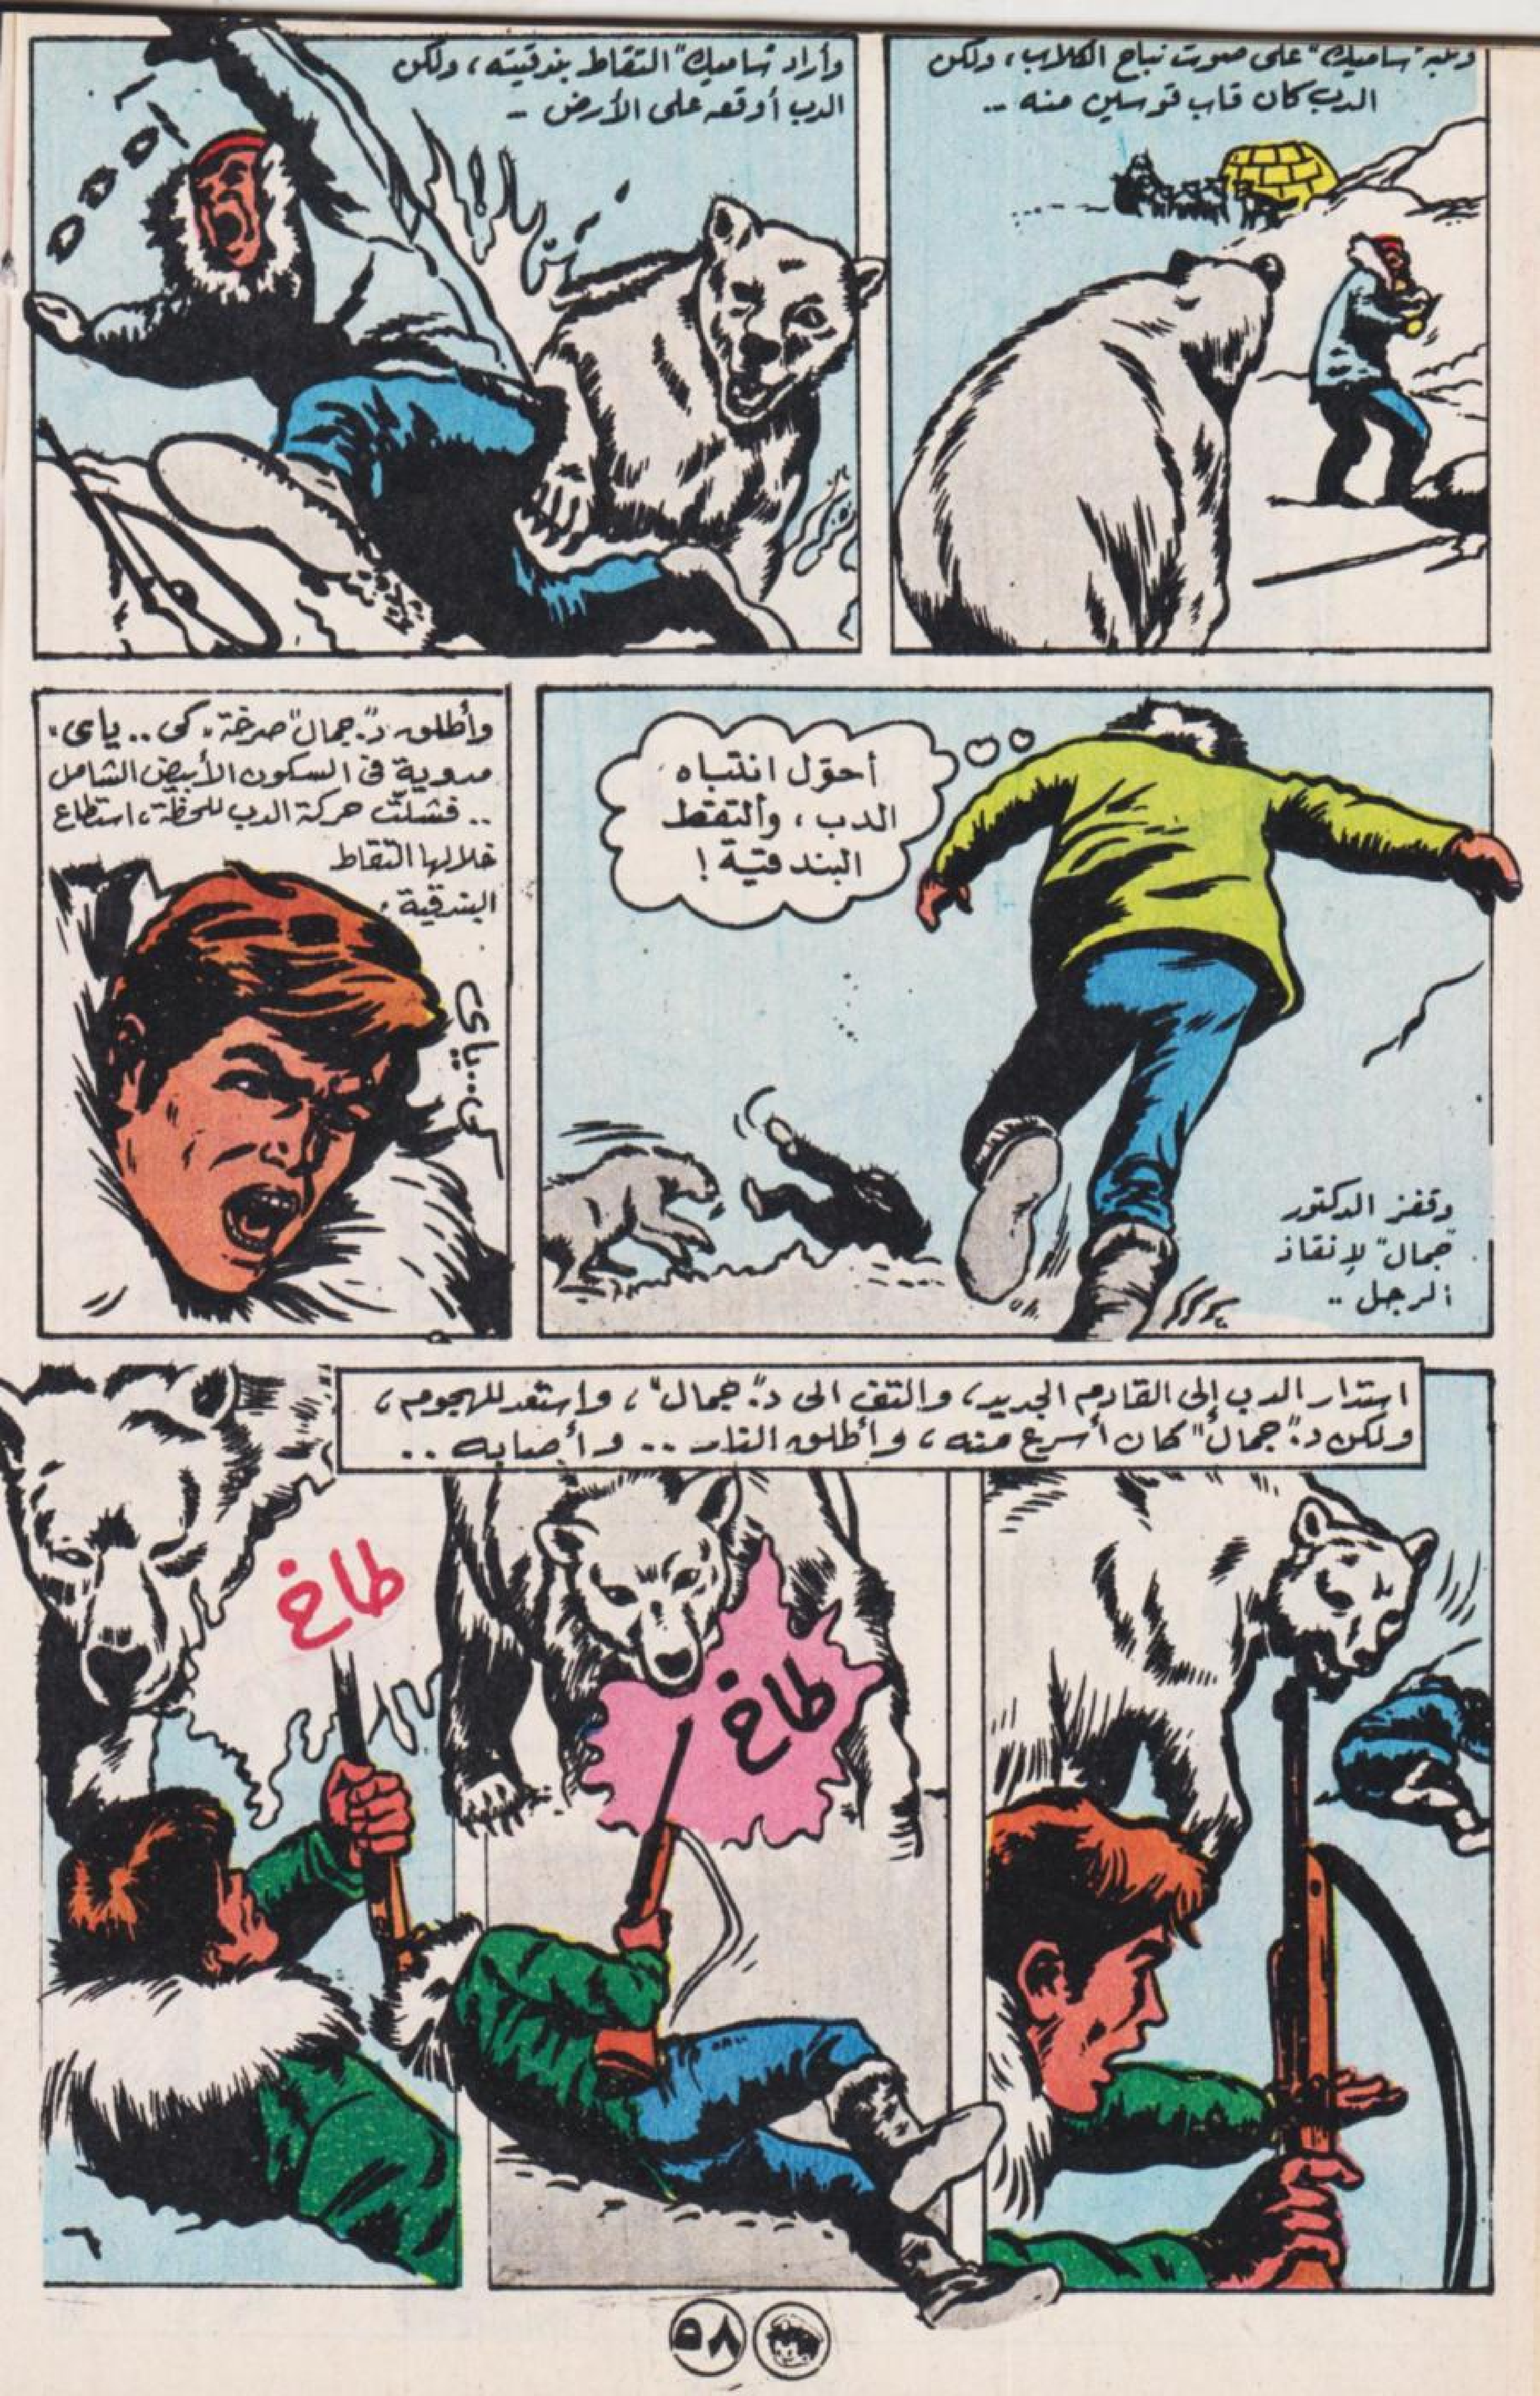 وتنبه "ساميك" على صوت نباح الكلاب، ولكن
الدب كان قاب قوسين منه ..
وأراد "ساميك" التقاط بندقيته، ولكن
الدب أوقعه على الأرض ..
أحوّل انتباه
الدب، وألتقط
البندقية!
وقفز الدكتور
"جمال" لإنقاذ
الرجل ..
وأطلق د."جمال" صرخة "كى..ياى"
مدوية فى السكون الأبيض الشامل
.. فشلّت حركة الدب للحظة، استطاع
خلالها التقاط
البندقية.
كى...ياى
استدار الدب إلى القادم الجديد، والتفت الى د."جمال"، واستعد للهجوم،
ولكن د."جمال" كان أسرع منه، وأطلق النار .. وأصابه ..
طاخ
طاخ
٥٨